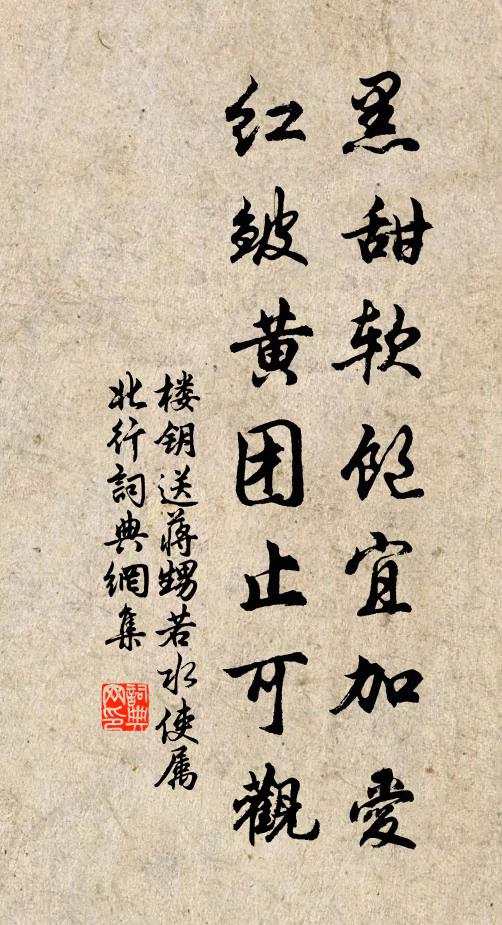 黑甜软饱宜加爱
红皱黄团止可觀
楼钥送蒋甥若水使属
北行詞典網集
詞典
网印